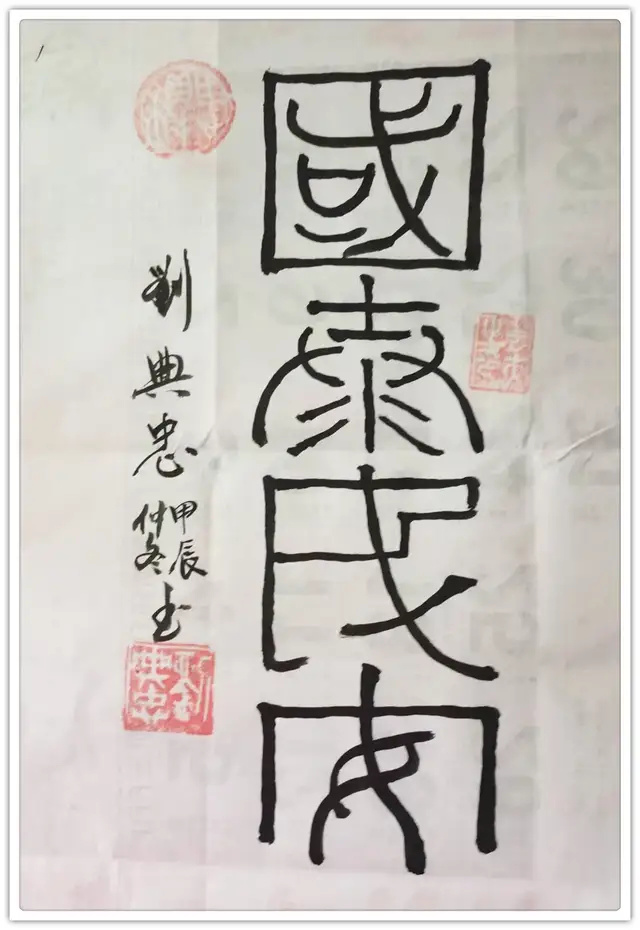 國泰民安
劉典忠
甲辰
仲冬
書
劉典忠